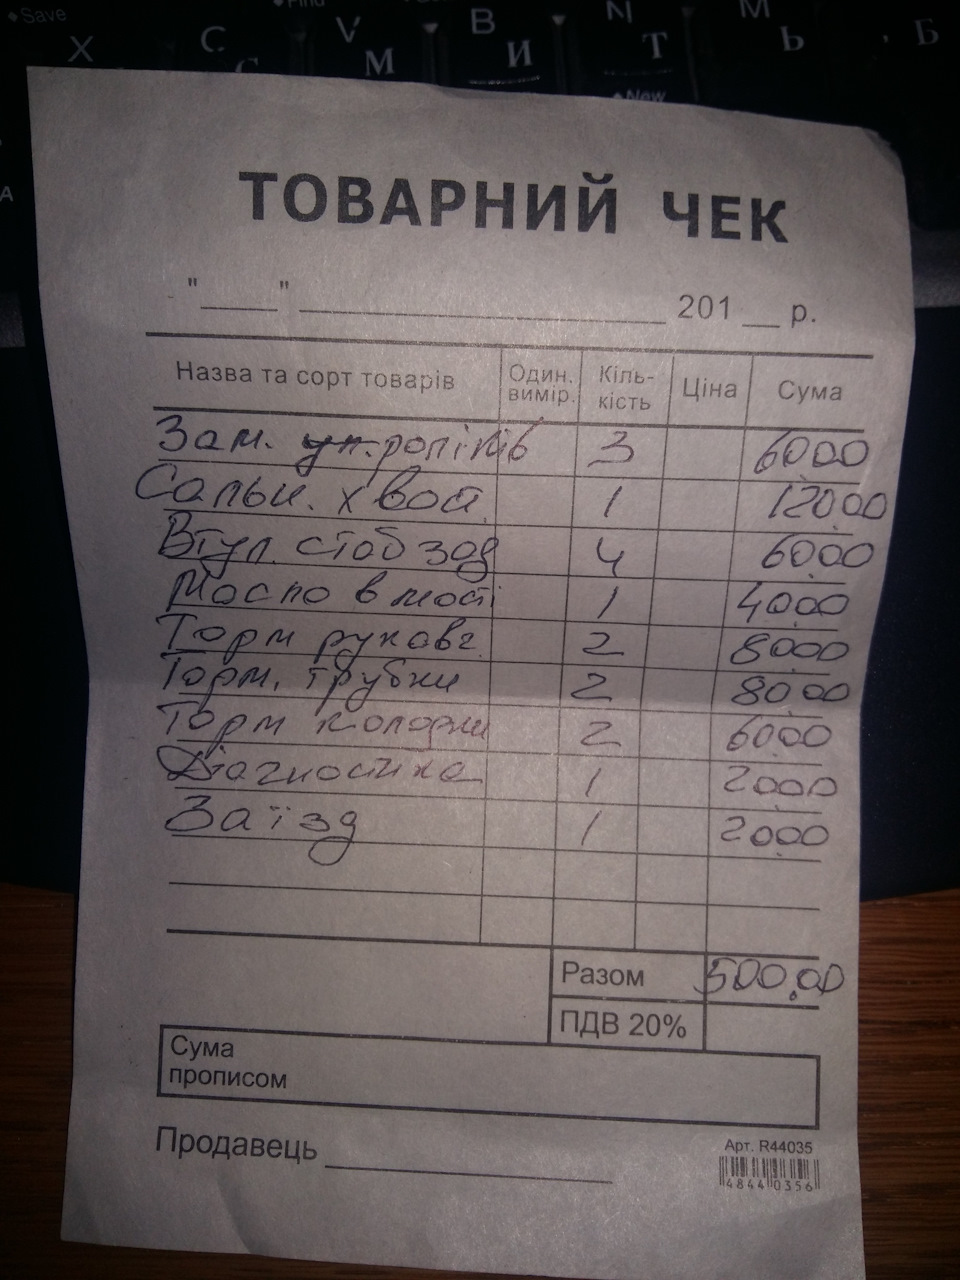 Save
Find
X C V B N M
С М И Т Ь Б
New
A
ТОВАРНИЙ ЧЕК
"____" ____________________ 201 __ р.
Назва та сорт товарів Один. вимір. Кіль-кість Ціна Сума
Зам. роліків 3 60.00
Сальн. хвост. 1 120.00
Втул. стаб зад 4 60.00
Масло в мості 1 40.00
Торм рукавг. 2 80.00
Торм. трубки 2 80.00
Торм колодки 2 60.00
Діагностика 1 20.00
Заїзд 1 20.00
Разом 500,00
ПДВ 20%
Сума
прописом
Продавець
Арт. R44035
48440356